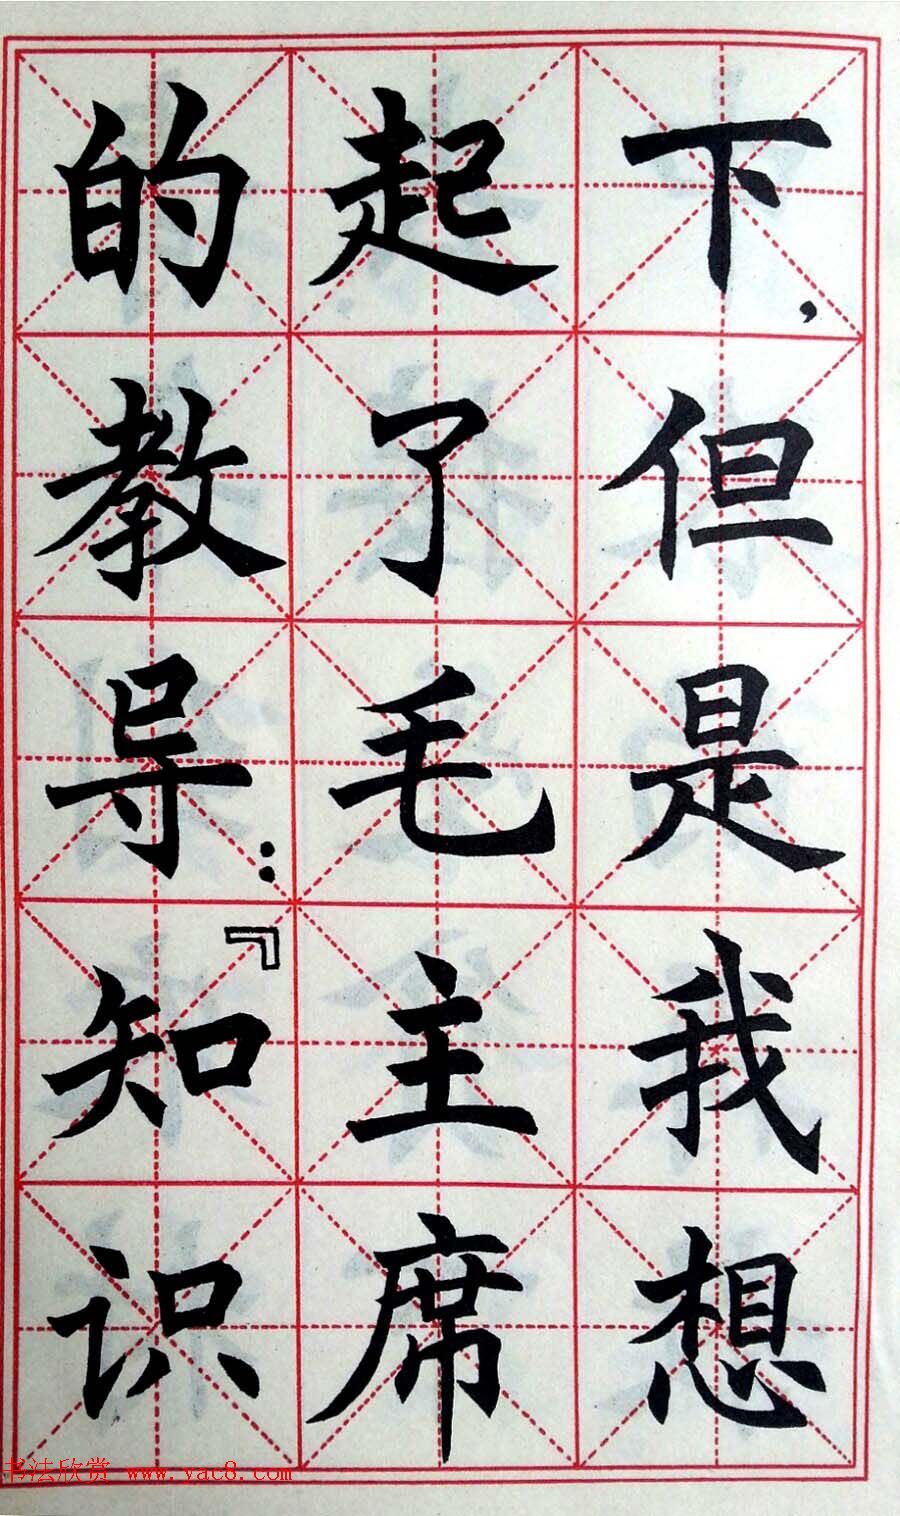 下，但是我想
起了毛主席
的教导：『知识
书法欣赏 www.yac8.com